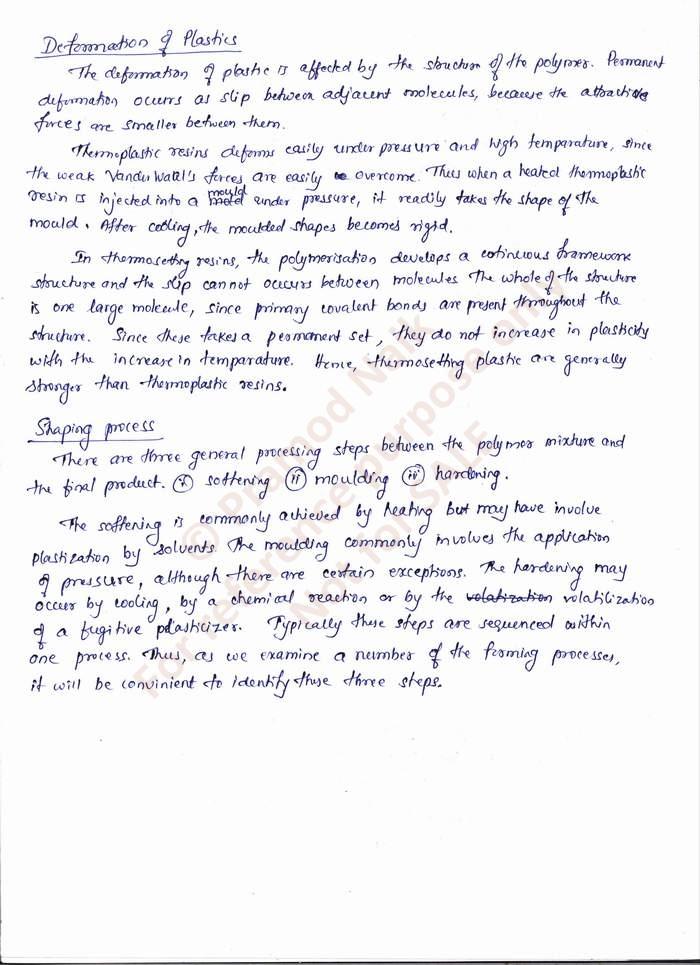 Deformation of Plastics
The deformation of plastic is affected by the structure of the polymer. Permanent
deformation occurs as slip between adjacent molecules, because the attractive
forces are smaller between them.
Thermoplastic resins deforms easily under pressure and high temparature, since
the weak Vander Watel's forces are easily overcome. Thus when a heated thermoplastic
resin is injected into a mould under pressure, it readily takes the shape of the
mould. After cooling, the moulded shapes becomes rigid.
In thermosetting resins, the polymerisation develops a cotinuous framework
structure and the slip cannot occurs between molecules The whole of the structure
is one large molecule, since primary covalent bonds are present throughout the
structure. Since these takes a permanent set, they do not increase in plasticity
with the increase in temparature. Hence, thermosetting plastic are generally
stronger than thermoplastic resins.
Shaping process
There are three general processing steps between the polymer mixture and
the final product. (i) softening (ii) moulding (iii) hardening.
The softening is commonly achieved by heating but may have involve
plastization by solvents. The moulding commonly involves the application
of pressure, although there are certain exceptions. The hardening may
occur by cooling, by a chemical reaction or by the volatization volatilization
of a fugitive plasticizer. Typically these steps are sequenced within
one process. Thus, as we examine a number of the forming processes,
it will be convinient to identify these three steps.
© Pramod Naik
For reference purpose only
Not for SALE